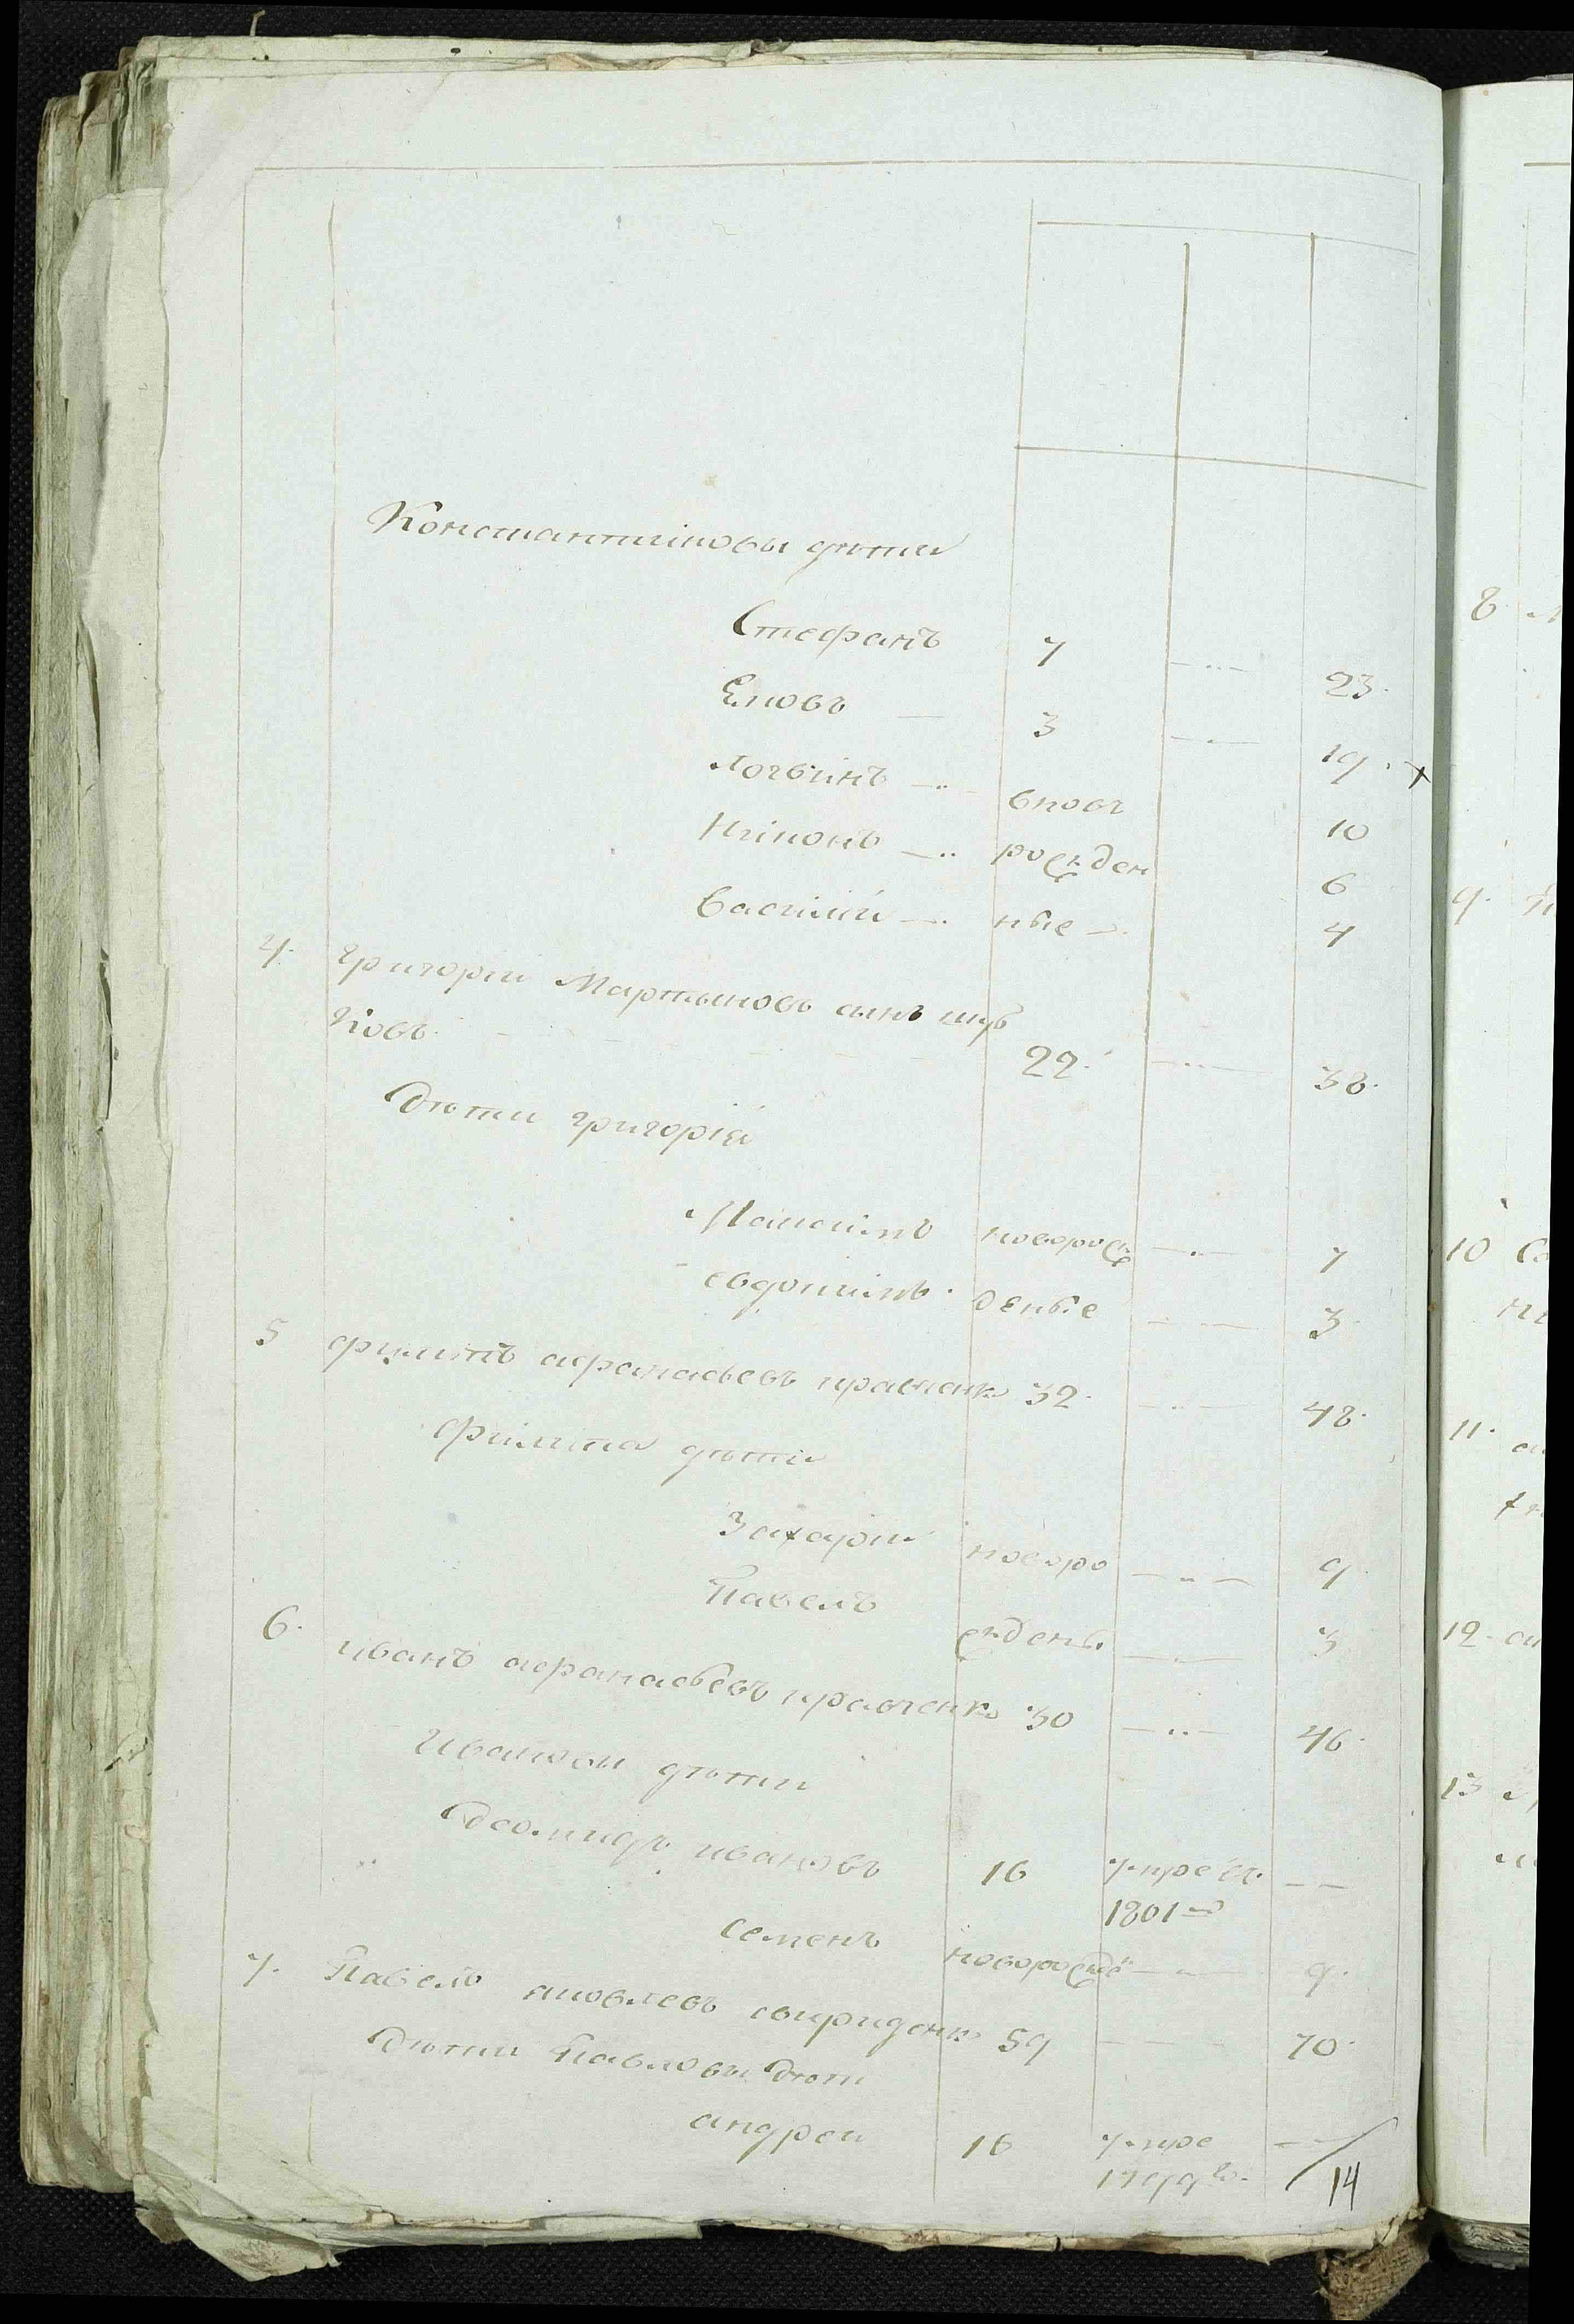 Константиновы дѣти
Стефанъ 7 — 23.
Еловъ — 3 — 19.
Логвинъ — вновъ 10
Никонъ — рожден 6
Василий — ные — 4
4. Григорий Мартыновъ сынъ
ковъ 22. — 38.
Дѣти григорія
Максимъ новорож — 7
евдокимъ деные — 3
5 филипъ афанасьевъ кравченко 32. — 48.
Филипа дѣти
Захарий новоро — 9
Павелъ жденые — 3
6. иванъ афанасьевъ кравченко 30 — 46.
Ивановы дѣти
Деомидъ ивановъ 16 умре въ —
1801
семенъ новорожде — 9.
7. Павелъ яковлевъ свириденко 59 — 70.
Дѣти Павловы Дѣти
андрей 16 умре —
1799 14
8
9.
10
11.
12
13